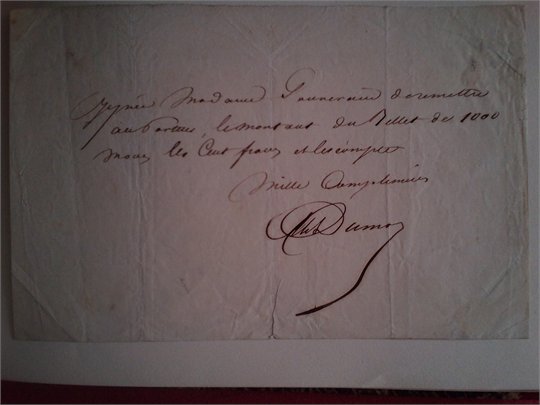 Je prie Madame de remettre
au Porteur, le montant du Billet de 1000
moins les Cent francs et l'escompte
Mille Complimens
Dumas